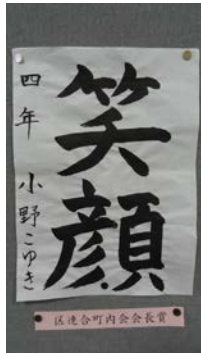 笑顔
四年 小野こゆき
区連合町内会会長賞